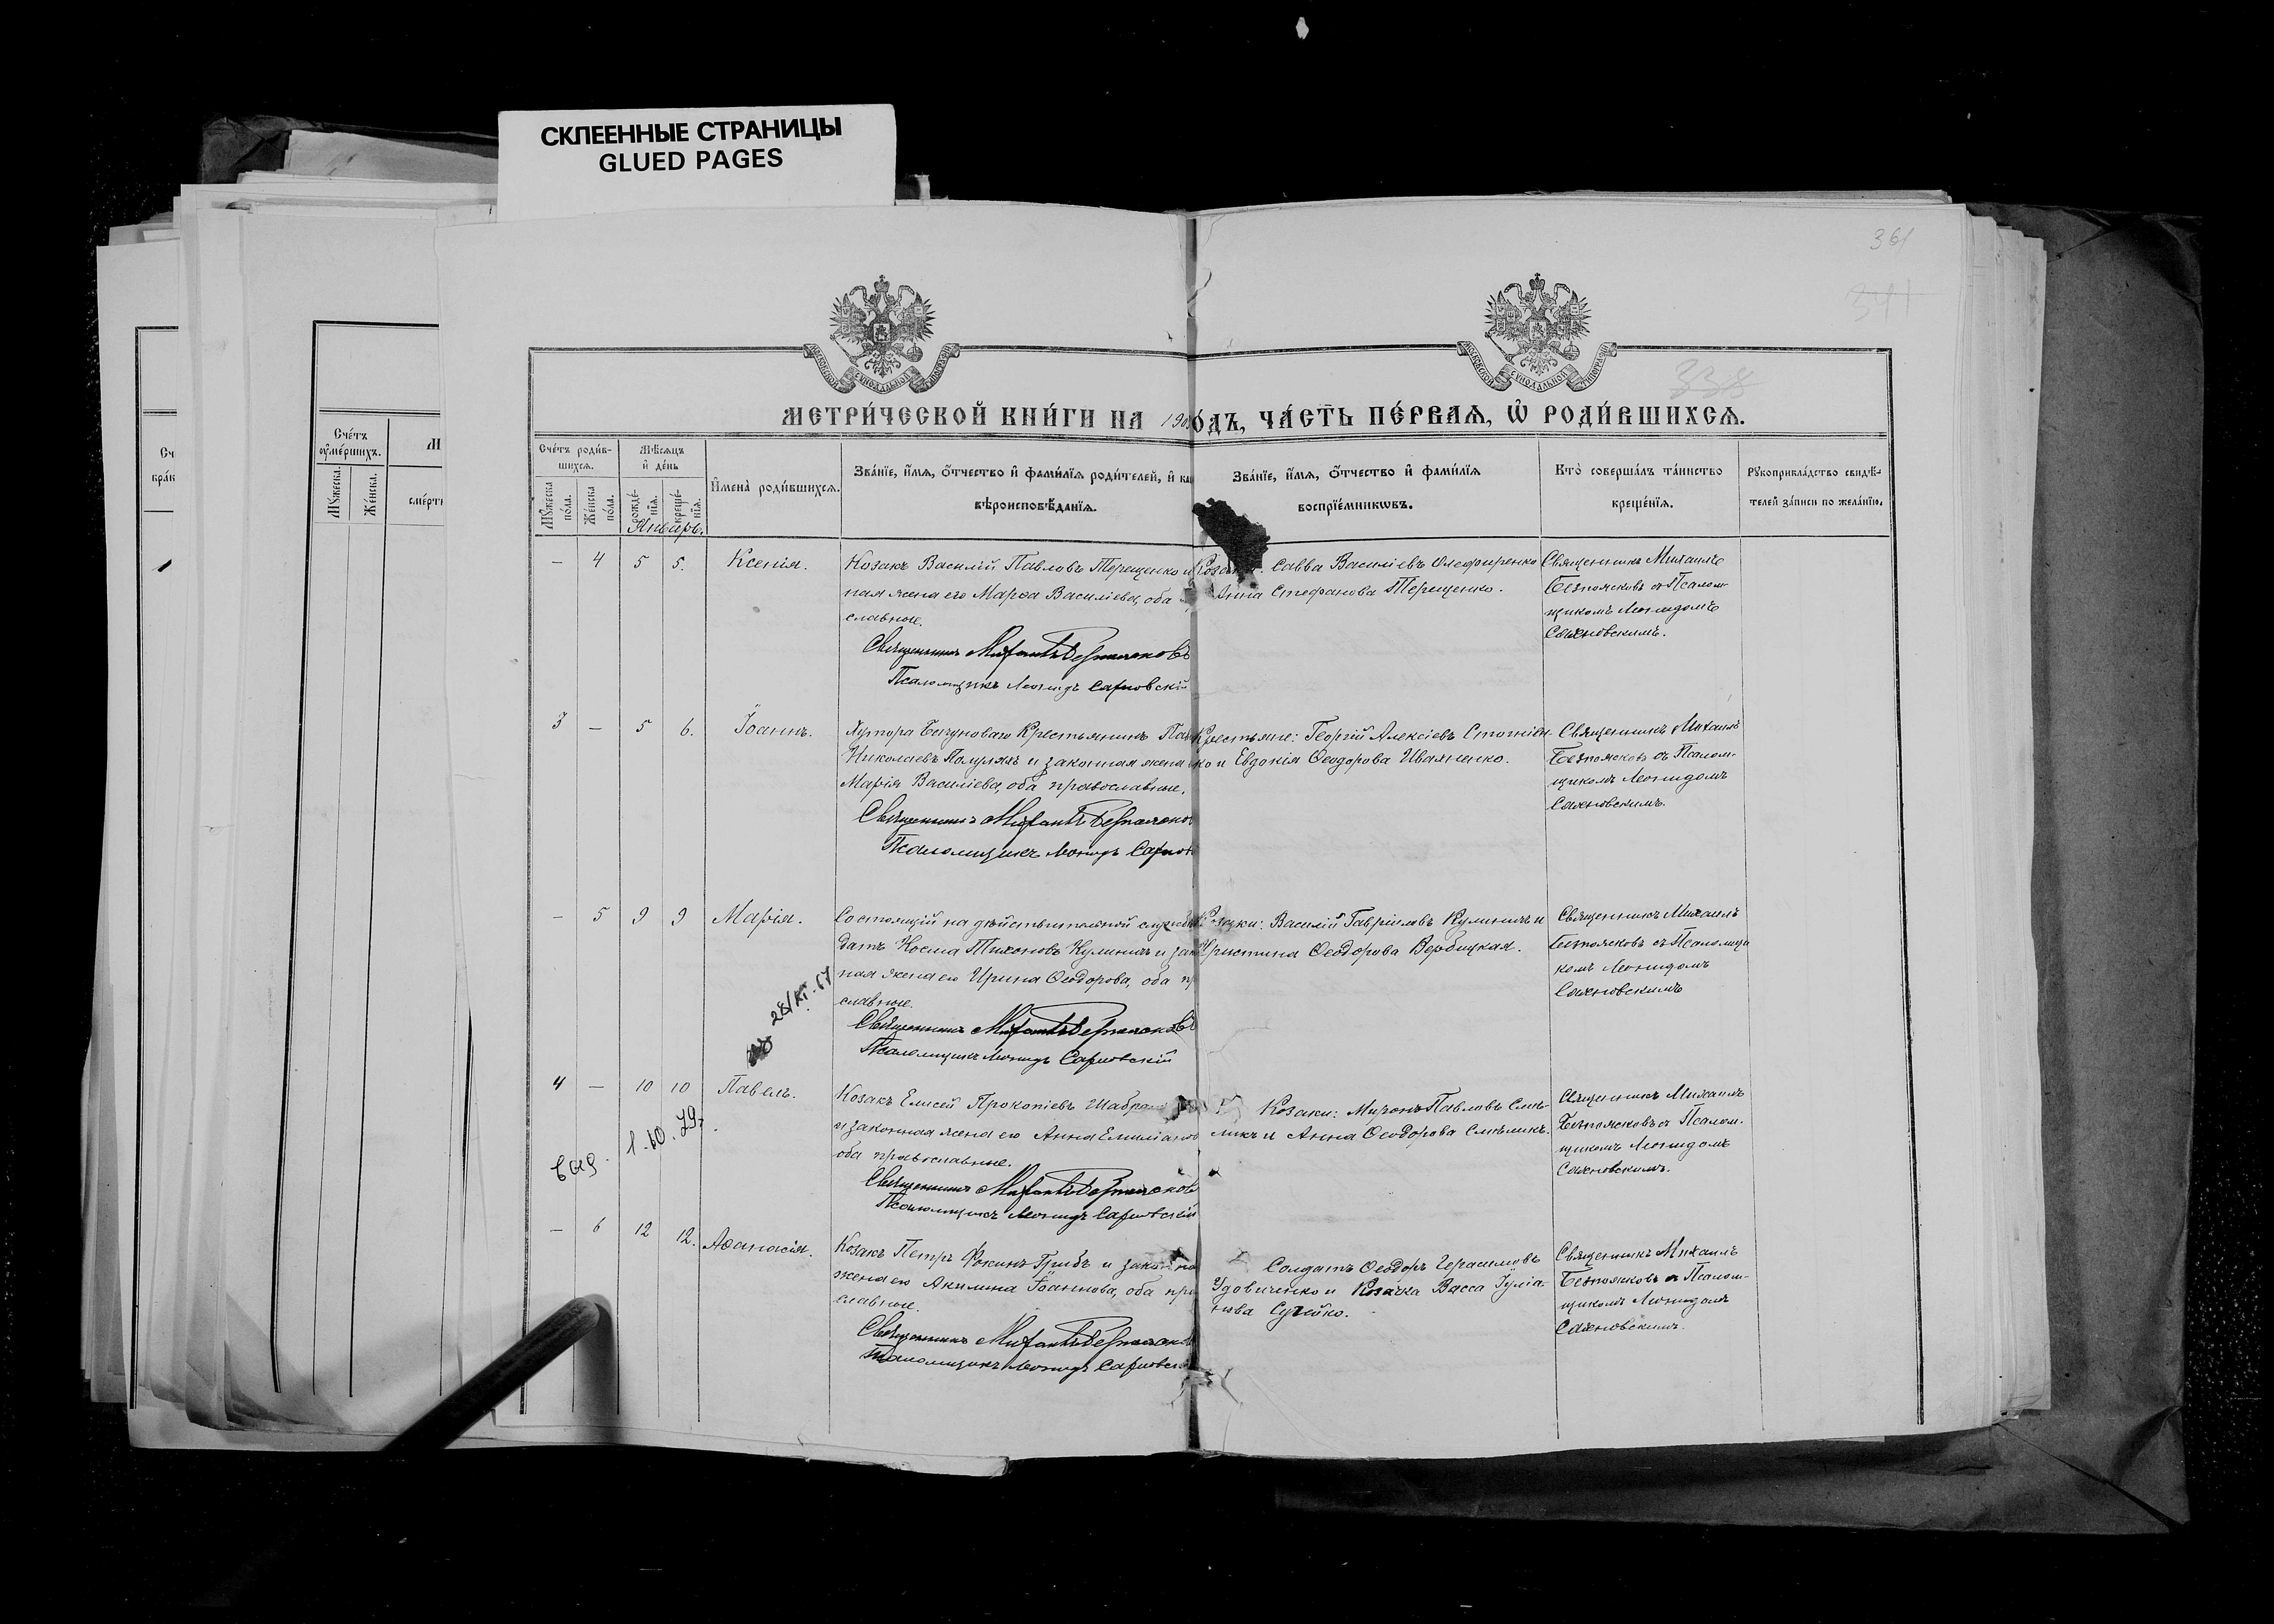 СКЛЕЕННЫЕ СТРАНИЦЫ
GLUED PAGES
361
341
338
МЕТРИ́ЧЕСКОЙ КНИ́ГИ НА 190 О́ДЪ, ЧА́СТЬ ПЕ́РВАЯ, Ѿ РОДИ́ВШИХСЯ.
Сче́тъ роди́в-
шихся.
Мѣ́сяцъ
и҆ де́нь
Мꙋ́жеска по́ла.
Же́нска по́ла.
рожде́-
нїѧ.
креще́-
нїѧ.
И҆мена̀ роди́вшихся.
Зва́нїе, и҆́мя, ѻ҆́тчество и҆ фами́лїя роди́телей, и҆ ка
вѣроисповѣ́данїя.
Зва́нїе, и҆́мя, ѻ҆́тчество и҆ фами́лїя
воспрїе́мниковъ.
Кто̀ соверша́лъ та́инство
креще́нїя.
Рꙋкоприкла́дство свидѣ́-
телей за́писи по жела́нїю.
Сче́тъ
ᲂу҆ме́ршихъ.
Мꙋ́жеска.
Же́нска.
Январь.
— 4 5 5. Ксенія.
Козакъ Василій Павловъ Терещенко и
ная жена его Марѳа Василіева, оба
славные.
Священникъ Михаилъ Безпоясковъ
Псаломщикъ Леонидъ Сахновскій
Савва Василіевъ Олефиренко
Анна Стефанова Терещенко.
Священникъ Михаилъ
Безпоясковъ съ Псалом-
щикомъ Леонидомъ
Сахновскимъ.
3 — 5 6. Іоаннъ.
Хутора Бегуноваго Крестьянинъ Па
Николаевъ и законная жена
Марія Василіева, оба православные.
Священникъ Михаилъ Безпоясков
Псаломщикъ Леонидъ Сахнов
Крестьяне: Георгій Алексіевъ Стогніен-
ко и Евдокія Ѳеодорова Иваненко.
Священникъ Михаилъ
Безпоясковъ съ Псалом-
щикомъ Леонидомъ
Сахновскимъ.
— 5 9 9 Марія.
Состоящій на дѣйствительной службѣ
датъ Косма Тихоновъ Кулиничъ и зак
ная жена его Ирина Ѳеодорова, оба пр
славные.
Священникъ Михаилъ Безпоясковъ
Псаломщикъ Леонидъ Сахновскій
Козаки: Василій Гавріиловъ Кулиничъ и
Христина Ѳеодорова Вербицкая.
Священникъ Михаилъ
Безпоясковъ съ Псаломщи
комъ Леонидомъ
Сахновскимъ
28/XI-67
4 — 10 10 Павелъ.
1.10.79г.
Козакъ Елисей Прокопіевъ
и законная жена его Анна Емиліанов
оба православные.
Священникъ Михаилъ Безпоясковъ
Псаломщикъ Леонидъ Сахновскій
Козаки: Миронъ Павловъ Смѣ-
ликъ и Анна Ѳеодорова Смѣликъ.
Священникъ Михаилъ
Безпоясковъ съ Псалом-
щикомъ Леонидомъ
Сахновскимъ.
— 6 12 12. Аѳанасія.
Козакъ Петръ Фокинъ Грибъ и законна
жена его Акилина Іоаннова, оба пра
славные.
Священникъ Михаилъ Безпоясков
Псаломщикъ Леонидъ Сахновскі
Солдатъ Ѳеодоръ Герасимовъ
Удовиченко и Козачка Васса Іуліа-
нова
Священникъ Михаилъ
Безпоясковъ съ Псалом-
щикомъ Леонидомъ
Сахновскимъ.